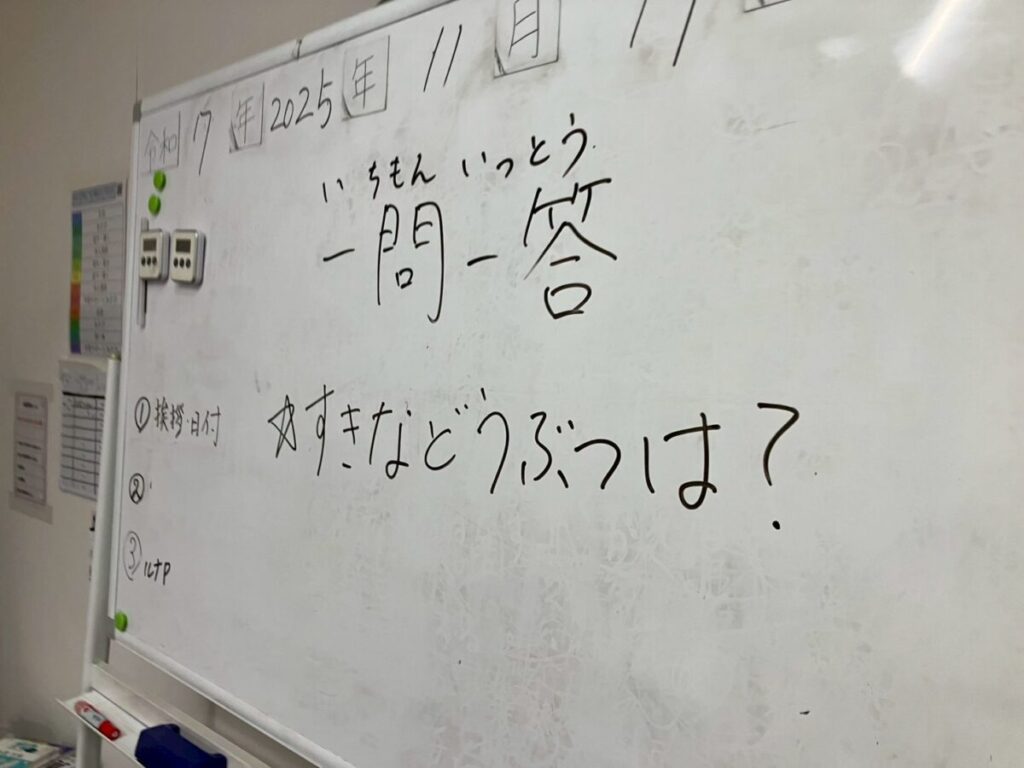 令和 7 年 2025 年 11 月 17
いちもん いっとう
一問一答
① 挨拶・日付
☆すきなどうぶつは?
②
③